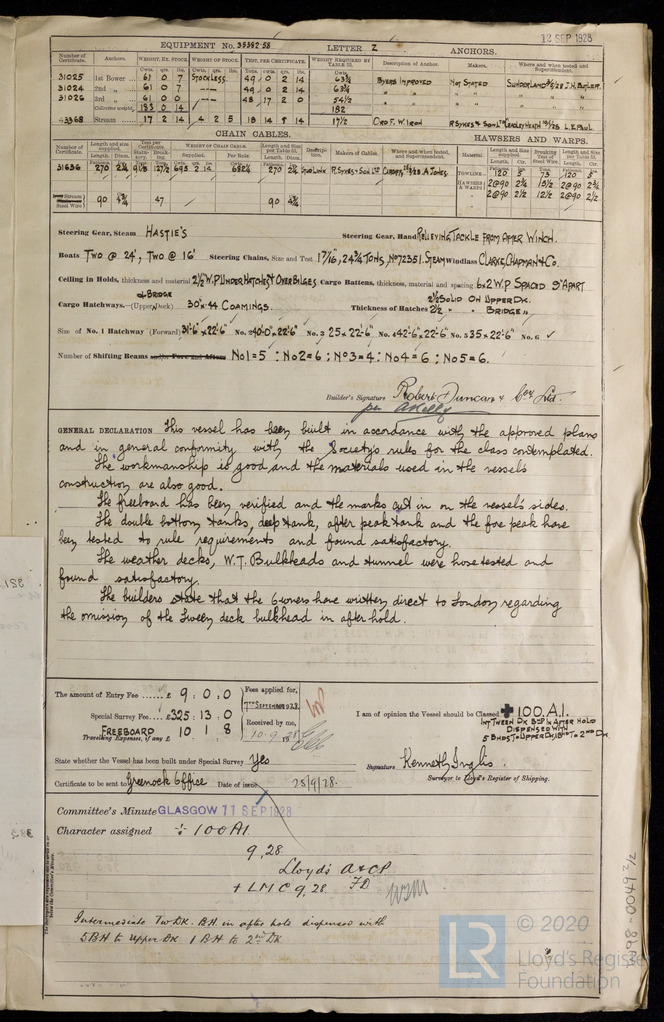 12 SEP 1928
EQUIPMENT No. 35392.58 LETTER Z ANCHORS.
Number of Certificate. Anchors. WEIGHT, EX. STOCK. WEIGHT OF STOCK. TEST, PER CERTIFICATE. WEIGHT REQUIRED BY TABLE 53. Description of Anchor. Makers. Where and when tested and Superintendent.
31025 1st Bower 61 0 7 STOCKLESS. 49 0 2 14 63¾ BYERS IMPROVED NOT STATED SUNDERLAND
31024 2nd „ 61 0 7 49 0 2 14 63¾
31026 3rd „ 61 0 0 48 17 2 0 54½
Collective weight 183 0 14 182
43368 Stream 17 2 14 4 2 5 18 14 8 14 17½ ORD F. W. IRON R SYKES & SON LTD L. E. PAUL
CHAIN CABLES. HAWSERS AND WARPS.
31636 270 2¼ 270 2¼ STUD LINK R. SYKES & SON LTD A JONES. TOWLINE 120 5" 73 120 5"
HAWSERS & WARPS 2@90 2¾ 15½ 2@90 2¾
2@90 2½ 12½ 2@90 2½
Stream Steel Wire 90 4¾ 47 90 4¾
Steering Gear, Steam HASTIE'S Steering Gear, Hand RELIEVING TACKLE FROM AFTER WINCH.
Boats TWO @ 24', TWO @ 16' Steering Chains, Size and Test 1 7/16", 24¾ TONS, No 72351. STEAM Windlass CLARKE, CHAPMAN & Co.
Ceiling in Holds, thickness and material 2½" W.P. UNDER HATCHES & OVER BILGES Cargo Battens, thickness, material and spacing 6x2 W.P. SPACED 9" APART
Cargo Hatchways.—(Upper Deck) & BRIDGE 30" x .44 COAMINGS. Thickness of Hatches 2½ SOLID ON UPPER DK.
2½ " " BRIDGE "
Size of No. 1 Hatchway (Forward) 31'-6" x 22'-6" No. 2 40'-0" x 22'-6" No. 3 25 x 22'-6" No. 4 42'-6" x 22'-6" No. 5 35 x 22'-6" No. 6 ✓
Number of Shifting Beams and/or Fore and Afters No 1 = 5 : No 2 = 6 : No 3 = 4 : No 4 = 6 : No 5 = 6.
Builder's Signature Robert Duncan & Coy Ltd.
per
GENERAL DECLARATION This vessel has been built in accordance with the approved plans
and in general conformity with the Society's rules for the class contemplated.
The workmanship is good, and the materials used in the vessel's
construction are also good.
The freeboard has been verified and the marks cut in on the vessel's sides.
The double bottom tanks, deep tank, after peak tank and the fore peak have
been tested to rule requirements and found satisfactory.
The weather decks, W.T. Bulkheads and tunnel were hose tested and
found satisfactory.
The builders state that the Owners have written direct to London regarding
the omission of the tween deck bulkhead in after hold.
The amount of Entry Fee ...... £ 9 : 0 : 0 Fees applied for,
7TH SEPTEMBER 1928.
Special Survey Fee... £325 : 13 : 0 Received by me,
FREEBOARD 10 1 8
Travelling Expenses, if any £ 10.9.1928
I am of opinion the Vessel should be Classed ✠ 100.A.1.
INT TWEEN DK BHD IN AFTER HOLD
DISPENSED WITH
5 BHDS TO UPPER DK, 1 BHD TO 2ND DK
State whether the Vessel has been built under Special Survey Yes Signature Kenneth Inglis.
Surveyor to Lloyd's Register of Shipping.
Certificate to be sent to Greenock Office Date of issue 25/9/28.
Committee's Minute GLASGOW 11 SEP 1928
Character assigned + 100 A1
9,28.
Lloyd's A & CP
+ LMC 9,28. FD
Intermediate Tw DK. BH. in after hold dispensed with
5 BH to upper DK 1 BH to 2nd DK
© 2020
LR
Lloyd's Register
Foundation